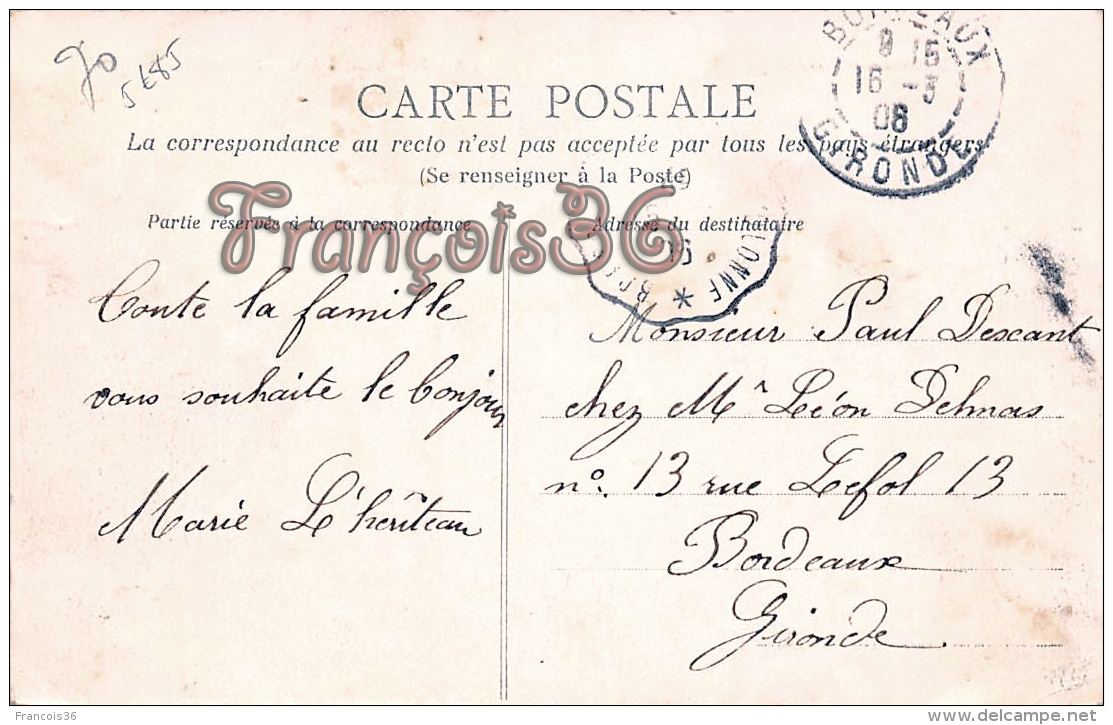 70
5685
CARTE POSTALE
La correspondance au recto n'est pas acceptée par tous les pays étrangers
(Se renseigner à la Poste)
BORDEAUX
16 -3
06
GIRONDE
François36
Partie réservée à la correspondance
Adresse du destinataire
Toute la famille
vous souhaite le bonjour
Marie L'heriteau
Monsieur Paul Descant
chez Mr Léon Delmas
no. 13 rue Lefol 13
Bordeaux
Gironde
Francois36
www.delcampe.net